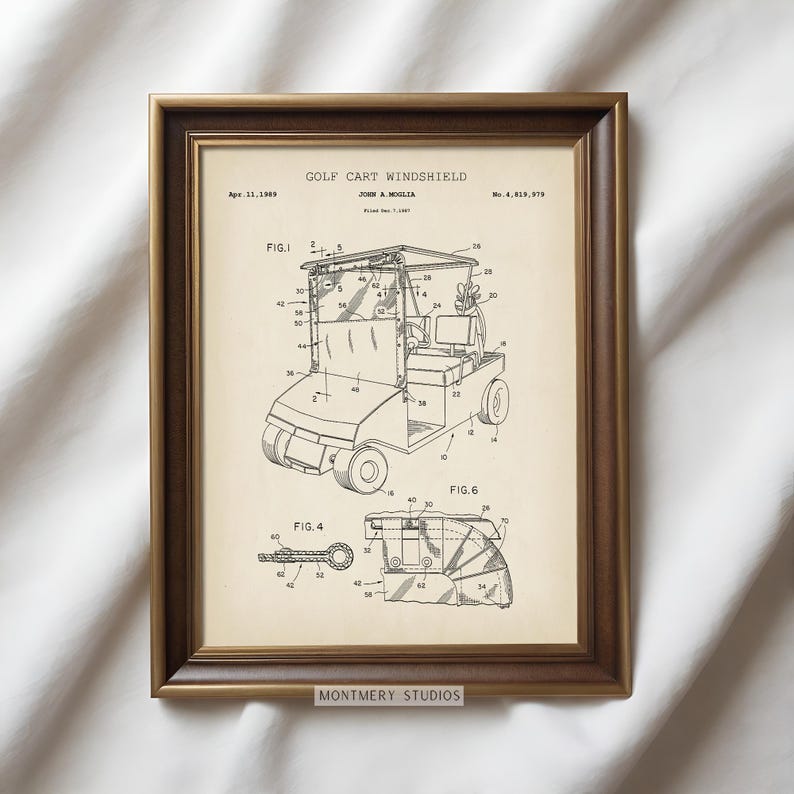 GOLF CART WINDSHIELD
Apr.11,1989 JOHN A.MOGLIA No.4,819,979
Filed Dec.7,1987
FIG.1
2 5 26
46 62 28 28
30 5 4 4 20
42 56
58 52 24
50
44 18
36 48
2 38 22
12 14
10
16
FIG.6
FIG.4 40 30 26
60 70
32
62 52
42 42 62 34
58
MONTMERY STUDIOS